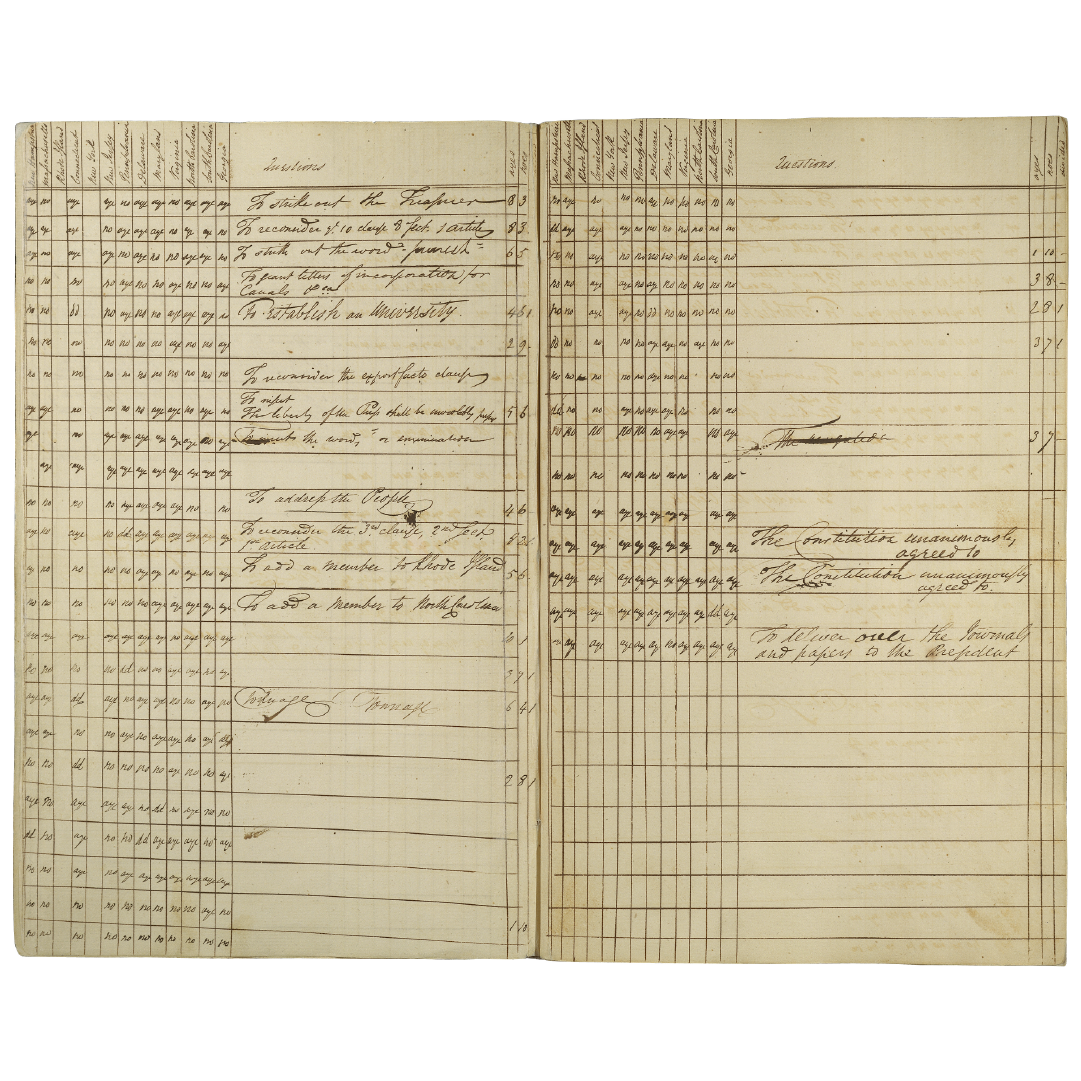 New Hampshire Massachusetts Rhode Island Connecticut New York New Jersey Pennsylvania Delaware Maryland Virginia North Carolina South Carolina Georgia Questions ayes noes
aye no aye aye no aye aye no aye aye aye To strike out the Treasurer 8 3
aye aye aye no aye aye aye no aye aye no To reconsider ye. 10 clause 8 sect. 1 article 8 3
aye no aye aye no aye no no aye aye no To strike out the word 6 5
no no no no aye no no aye no no aye To grant letters of incorporation for
Canals
no no dd no aye no no aye aye aye no To establish an University. 4 6 1
no no no no no no no aye no no aye 2 9
no no no no no no no no no no no To reconsider the expostfacto clause
To insert
aye aye no no no no aye aye no aye no The liberty of the Press shall be inviolably 5 6
aye no no aye aye aye aye aye no aye the words, "or enumeration
aye aye aye aye aye aye aye aye aye aye
no no no no aye aye aye aye no no To address the People 4 6
aye no aye no dd aye aye aye no aye To reconsider the 3rd. clause, 2nd sect. 8 2 1
1st article
aye no no no no aye no no aye aye aye To add a member to Rhode Island 5 6
no no no no no no aye aye aye aye aye To add a member to North Carolina
aye aye aye aye aye aye no aye aye aye 10 1
no no no no dd no no aye aye no aye 3 7 1
aye aye dd aye no aye aye no no aye no Tonnage Tonnage 6 4 1
aye aye no no aye no aye aye no aye dd
no no dd no no no no aye no no aye 2 8 1
aye no aye aye aye no dd no aye no no
dd no aye no no dd aye aye aye no aye
no no aye no aye aye aye aye aye aye aye
no no no no no no no no no aye no
no no no no no no no no no no no 1 10
New Hampshire Massachusetts Rhode Island Connecticut New York New Jersey Pennsylvania Delaware Maryland Virginia North Carolina South Carolina Georgia Questions. ayes noes divided
no aye no no no aye no no no no no
dd aye aye aye no no no no no no no
no no aye no no no no no aye no 1 10
no no aye aye no aye no no no no no 3 8
no no aye aye no dd no no no no no 2 8 1
dd no no no no aye aye no aye no no 3 7 1
no no no no no aye no no no no
dd no no aye no aye aye no no no
no no no no no no aye aye dd aye The 3 7
no no no no no no no no no no
aye aye aye aye aye aye aye aye aye aye
aye aye aye aye aye aye aye aye aye aye The Constitution unanimously
agreed to
aye aye aye aye aye aye aye aye aye aye aye The Constitution unanimously
agreed to.
aye aye aye aye aye aye aye aye aye dd aye
aye aye aye aye aye no aye aye aye aye To deliver over the Journals
and papers to the President